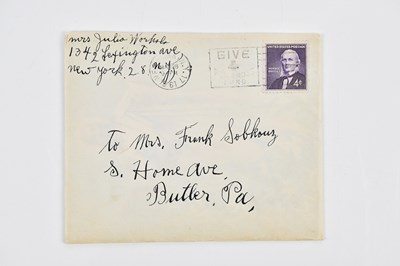 mrs Julia Warhola
1342 Lexington ave
New York 28 N.Y
GIVE
UNITED STATES POSTAGE
4¢
to Mrs. Frank Sobkouz
S. Home Ave.
Butler, Pa,